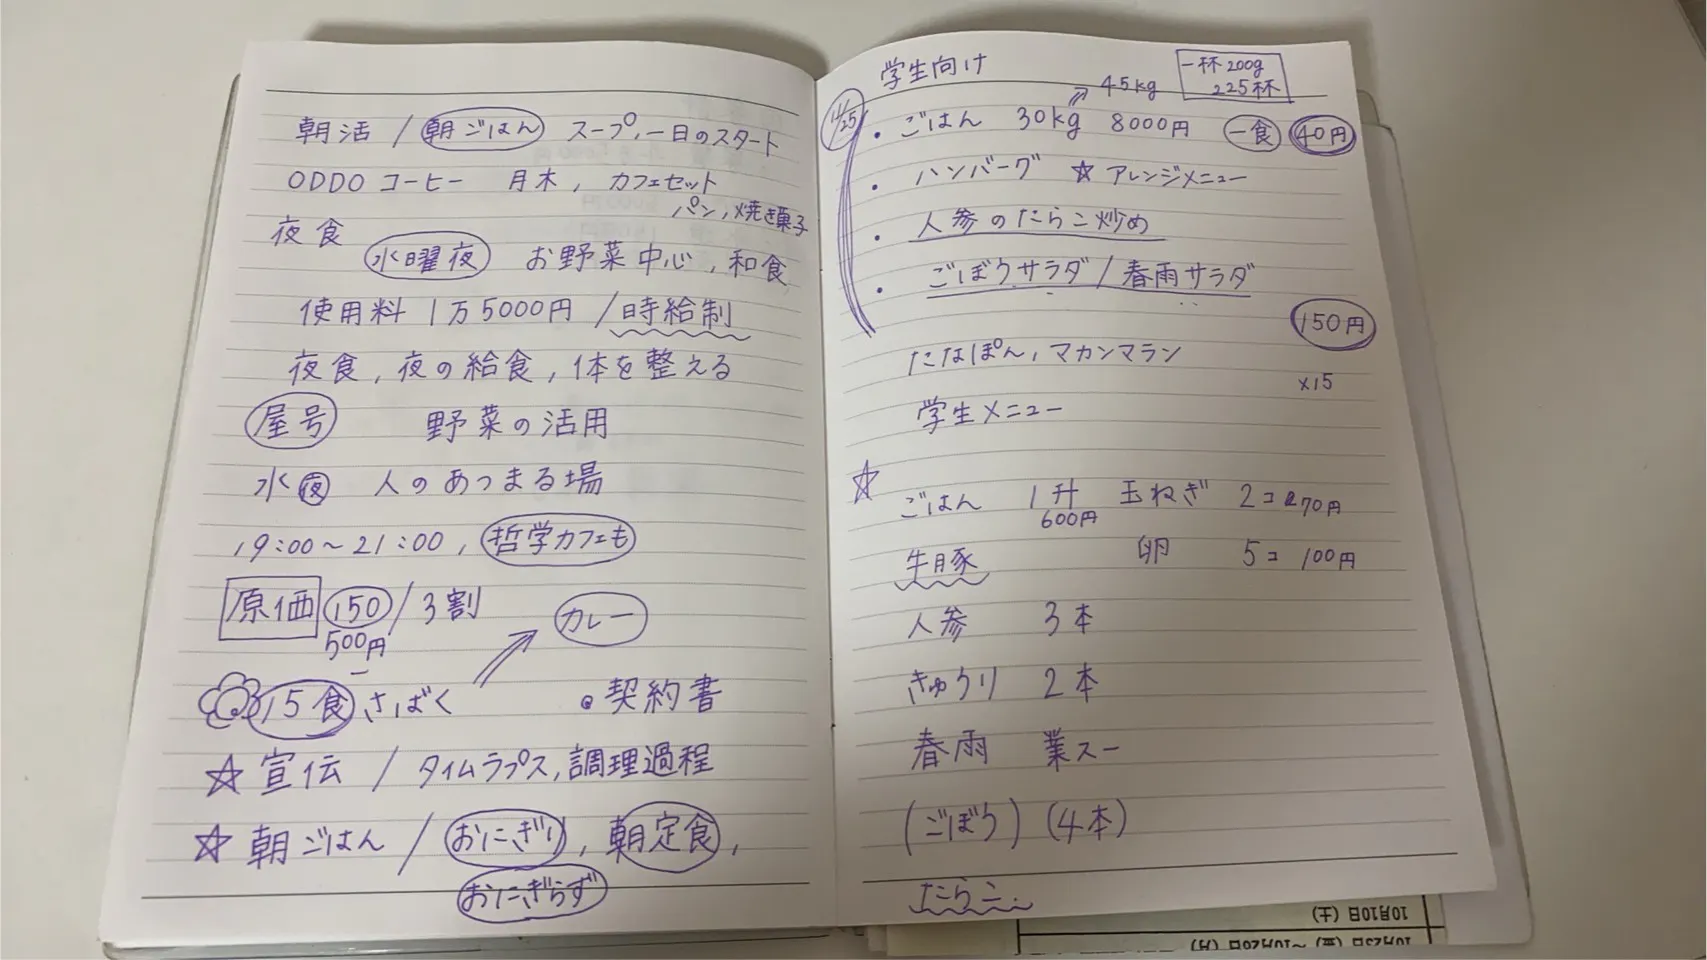 朝活 / 朝ごはん スープ, 一日のスタート
ODDO コーヒー 月木, カフェセット
パン, 焼き菓子
夜食
水曜夜 お野菜中心, 和食
使用料 1万5000円 / 時給制
夜食, 夜の給食, 体を整える
屋号 野菜の活用
水夜 人のあつまる場
19:00~21:00, 哲学カフェも
原価 150 / 3割
500円
カレー
15食 さばく
契約書
☆ 宣伝 / タイムラプス, 調理過程
☆ 朝ごはん / おにぎり, 朝定食,
おにぎらず
学生向け
一杯200g
225杯
45kg
11/25
・ごはん 30kg 8000円 一食 40円
・ハンバーグ ☆アレンジメニュー
・人参のたらこ炒め
・ごぼうサラダ / 春雨サラダ
150円
×15
たなぽん, マカンマラン
学生メニュー
☆
ごはん 1升 玉ねぎ 2コ 70円
600円
牛豚 卵 5コ 100円
人参 3本
きゅうり 2本
春雨 業スー
(ごぼう) (4本)
たらこ
10月10日 (土)
10月23日 (金) ~10月26日 (月)